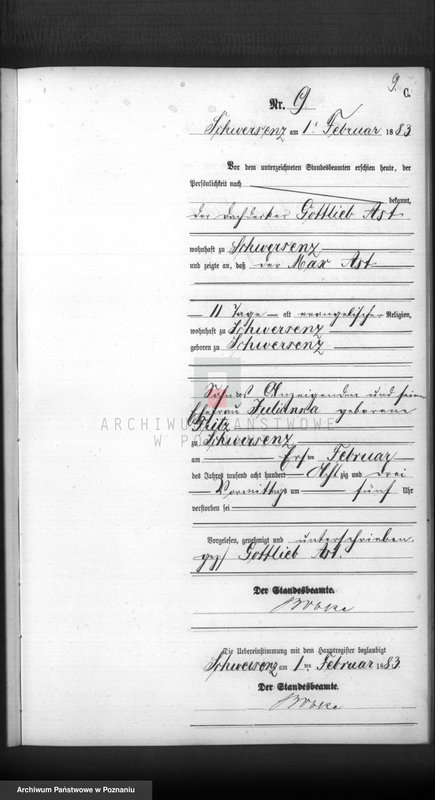 9.
C.
Nr. 9
Schwersenz am 1ten Februar 1883
Vor dem unterzeichneten Standesbeamten erschien heute, der
Persönlichkeit nach
bekannt,
der Dachdecker Gottlieb Ast
wohnhaft zu Schwersenz
und zeigte an, daß der Max Ast
11 Tage alt evangelischer Religion,
wohnhaft zu Schwersenz
geboren zu Schwersenz
Sohn des Anzeigenden und seiner
Ehefrau Julianna geborene
ARCHIWUM PAŃSTWOWE
W POZNANIU
zu Schwersenz
am Ersten Februar
des Jahres tausend acht hundert Achtzig und drei
Vormittags um fünf Uhr
verstorben sei
Vorgelesen, genehmigt und unterschrieben
gez/ Gottlieb Ast.
Der Standesbeamte.
Die Uebereinstimmung mit dem Hauptregister beglaubigt
Schwersenz am 1ten Februar 1883
Der Standesbeamte.
Archiwum Państwowe w Poznaniu